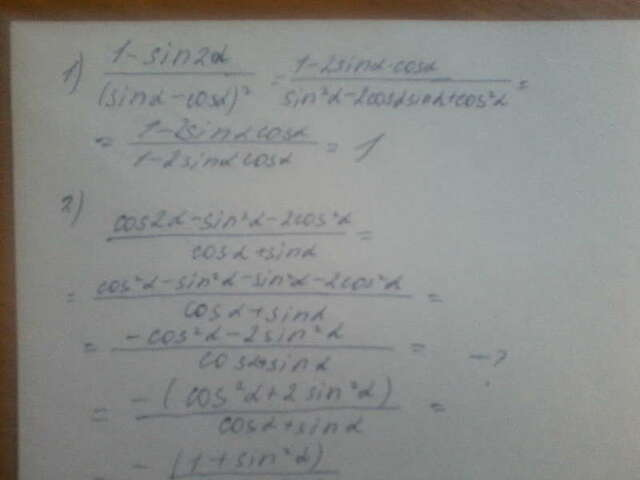 1) (1-sin2α)/(sinα-cosα)² = (1-2sinα·cosα)/(sin²α-2cosαsinα+cos²α) =
= (1-2sinαcosα)/(1-2sinαcosα) = 1
2) (cos2α-sin²α-2cos²α)/(cosα+sinα) =
= (cos²α-sin²α-sin²α-2cos²α)/(cosα+sinα) =
= (-cos²α-2sin²α)/(cosα+sinα) = →?
= (-(cos²α+2sin²α))/(cosα+sinα) =
= -(1+sin²α)